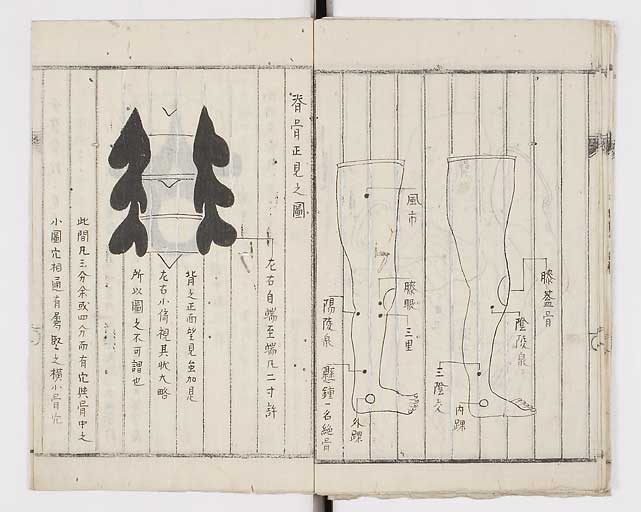 膝蓋骨
陰陵泉
三陰交
内踝
風市
膝眼
三里
陽陵泉
外踝
懸鍾一名絶骨
脊骨正見之圖
左右自端至端凡二寸許
背之正面望見無加息
左右小倚視其狀大略
所以圖之不可謂也
此間凡三分余或四分而有穴與骨中之
小圖穴相通有
之橫小骨穴